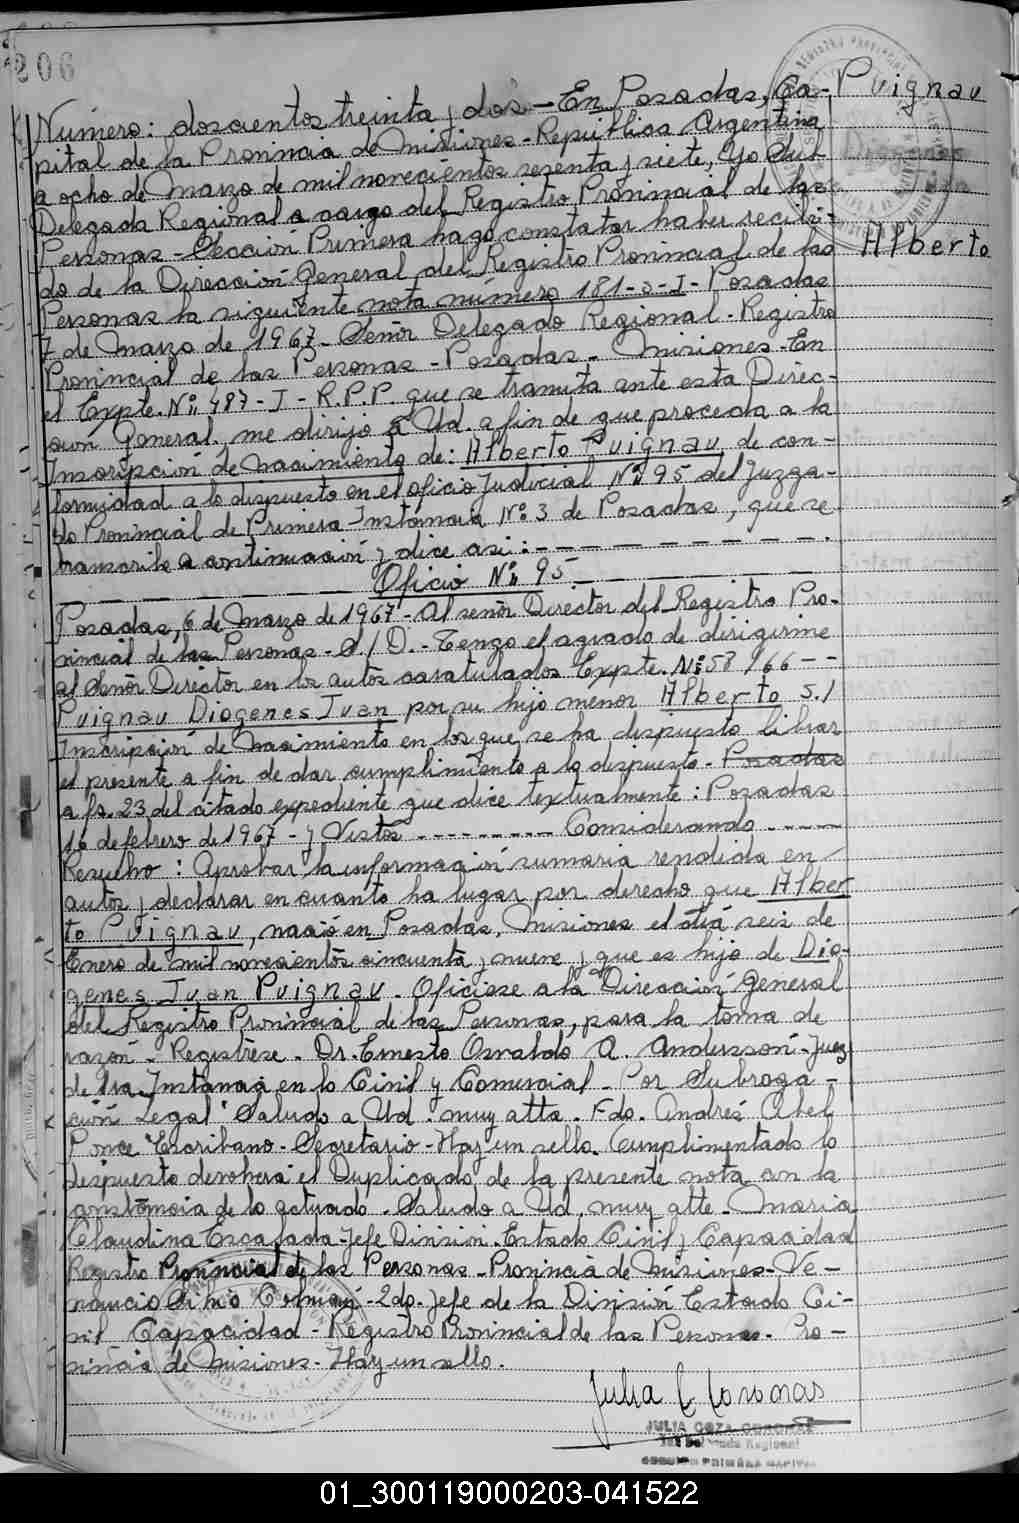 206
Puignau
Alberto
Número: doscientos treinta y dos - En Posadas, Ca-
pital de la Provincia de Misiones - República Argentina
a ocho de Marzo de mil novecientos sesenta y siete, Yo Sub
Delegada Regional a cargo del Registro Provincial de las
Personas - Sección Primera hago constatar haber recibi-
do de la Dirección General del Registro Provincial de las
Personas la siguiente nota número 181-S-I - Posadas
7 de Marzo de 1967 - Señor Delegado Regional - Registro
Provincial de las Personas - Posadas - Misiones - En
el Expte. Nº 487 - I - R.P.P. que se tramita ante esta Direc-
ción General, me dirijo a Ud. a fin de que proceda a la
Inscripción de Nacimiento de: Alberto Puignau de con-
formidad a lo dispuesto en el oficio Judicial Nº 95 del Juzga-
do Provincial de Primera Instancia Nº 3 de Posadas, que se
transcribe a continuación y dice así: - - - - - - - - - -
Oficio Nº 95
Posadas, 6 de Marzo de 1967 - Al señor Director del Registro Pro-
vincial de las Personas - S./D. - Tengo el agrado de dirigirme
al Señor Director en los autos caratulados Expte. Nº 58/66 - -
Puignau Diogenes Ivan por su hijo menor Alberto s./
Inscripción de Nacimiento en los que se ha dispuesto librar
el presente a fin de dar cumplimiento a lo dispuesto - Posadas
a fs. 23 del citado expediente que dice textualmente: Posadas
16 de febrero de 1967 - y Vistos - - - - - - - - - Considerando - - - - -
Resuelvo: Aprobar la información sumaria rendida en
autos y declarar en cuanto ha lugar por derecho que Alber
to Puignau, nació en Posadas, Misiones el día seis de
Enero de mil novecientos cincuenta y nueve y que es hijo de Dio-
genes Ivan Puignau. Oficiese a la Dirección General
del Registro Provincial de las Personas, para la toma de
razón - Registrese - Dr. Ernesto Osvaldo A. Andersson - Juez
de 1ra Instancia en lo Civil y Comercial - Por Subroga-
ción Legal" Saludo a Ud. muy atta. Fdo. Andrés Abel
Ponce Escribano - Secretario - Hay un sello. Cumplimentado lo
dispuesto devolverá el Duplicado de la presente nota con la
constancia de lo actuado. Saludo a Ud. muy atte - Maria
Claudina Escalada - Jefe División - Estado Civil y Capacidad
Registro Provincial de las Personas - Provincia de Misiones - Ve-
nancio Silvio - 2do. Jefe de la División Estado Ci-
vil Capacidad - Registro Provincial de las Personas. Pro-
vincia de Misiones - Hay un sello.
Julia C Coronas
JULIA COZA CORONAS
Delegada Regional
SECCION PRIMERA CAPITAL
01_300119000203-041522